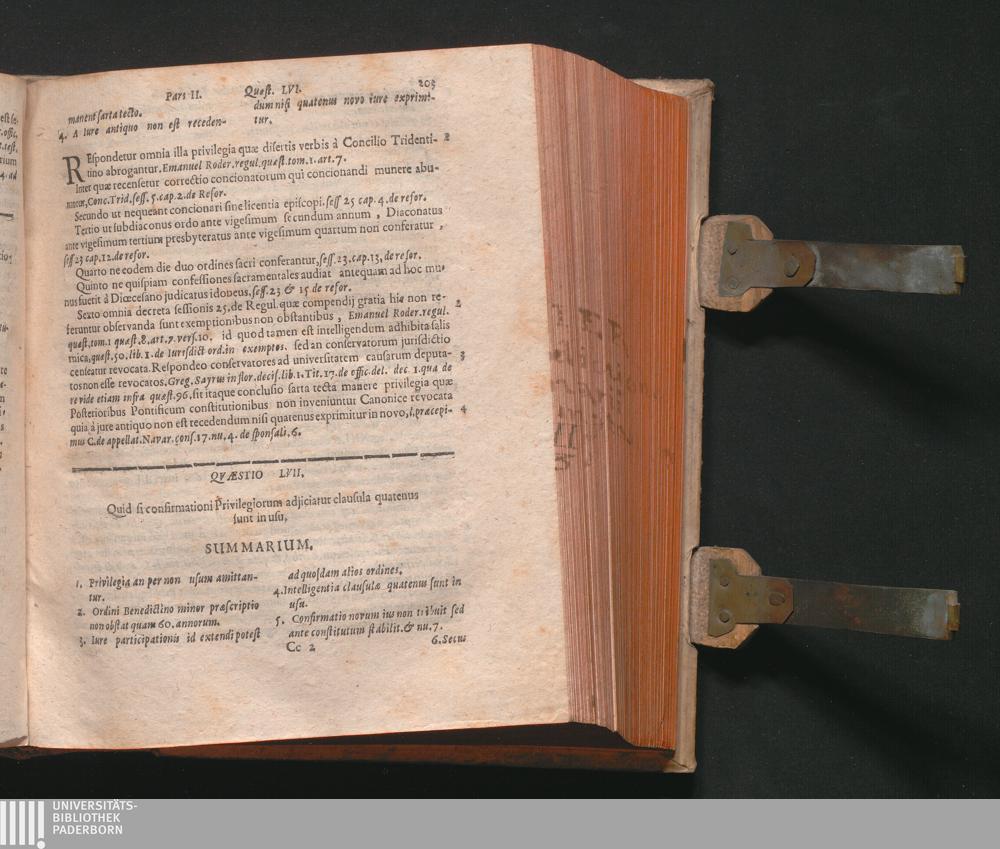 Pars II. Quæst. LVI. 203
manent sarta tecto.
4. A iure antiquo non est receden-
dum nisi quatenus novo iure exprimi-
tur.
REspondetur omnia illa privilegia quæ disertis verbis à Concilio Tridenti- 2
tino abrogantur. Emanuel Roder.regul.quæst.tom.1.art.7.
Inter quæ recensetur correctio concionatorum qui concionandi munere abu-
tuntur, Conc.Trid.sess.5.cap.2.de Refor.
Secundo ut nequeant concionari sine licentia episcopi.sess 25 cap. 4.de refor.
Tertio ut subdiaconus ordo ante vigesimum secundum annum, Diaconatus
ante vigesimum tertium presbyteratus ante vigesimum quartum non conferatur,
sess 23 cap.12.de refor.
Quarto ne eodem die duo ordines sacri conferantur,sess.23.cap.13,de refor.
Quinto ne quispiam confessiones sacramentales audiat antequam ad hoc mu-
nus fuerit à Diœcesano judicatus idoneus,sess.23 & 15 de refor.
Sexto omnia decreta sessionis 25.de Regul.quæ compendij gratia hic non re- 2
feruntur observanda sunt exemptionibus non obstantibus, Emanuel Roder.regul.
quæst.tom.1 quæst.8.art.7.vers.10. id quod tamen est intelligendum adhibita salis
mica,quæst.50.lib.1.de Iurisdict ord.in exemptos. sed an conservatorum jurisdictio
censeatur revocata.Respondeo conservatores ad universitatem causarum deputa- 3
tos non esse revocatos.Greg.Sayrus in flor.decis.lib.1.Tit.17.de offic.del. dec 1.qua de
re vide etiam infra quæst.96.sit itaque conclusio sarta tecta manere privilegia quæ
Posterioribus Pontificum constitutionibus non inveniuntur Canonice revocata
quia à jure antiquo non est recedendum nisi quatenus exprimitur in novo,l.præcepi- 4
mus C.de appellat.Navar.cons.17.nu.4. de sponsali.6.
QVÆSTIO LVII.
Quid si confirmationi Privilegiorum adjiciatur clausula quatenus
sunt in usu,
SUMMARIUM.
1. Privilegia an per non usum amittan-
tur.
2. Ordini Benedictino minor præscriptio
non obstat quam 60.annorum.
3. Iure participationis id extendi potest
ad quosdam alios ordines.
4.Intelligentia clausulæ quatenus sunt in
usu.
5. Confirmatio novum ius non tribuit sed
ante constitutum stabilit.& nu.7.
Cc 2 6.Secus
UNIVERSITÄTS-
BIBLIOTHEK
PADERBORN